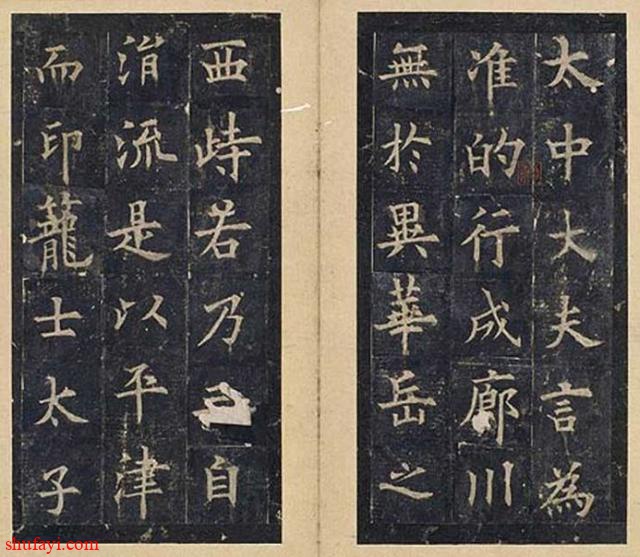 太中大夫言為
准的行成廊川
無於異華岳之
西峙若乃自
涓流是以平津
而印蘢士太子
shufayi.com